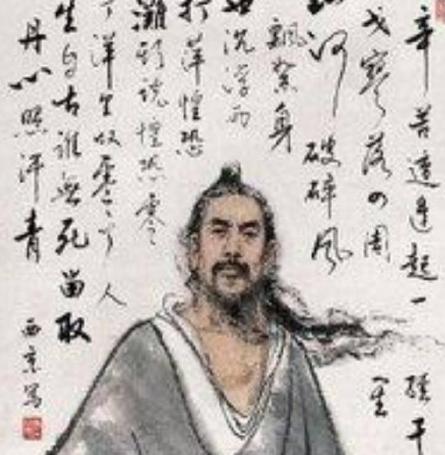 辛苦遭逢起一經干
戈寥落四周星
河破碎風
飄絮身
世沉浮雨
打萍惶恐
灘頭説惶恐零
丁洋里叹零丁人
生自古誰無死留取
丹心照汗青
西京寫